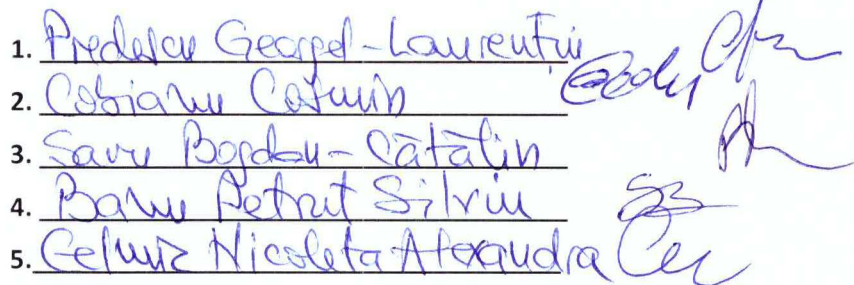 1. Predescu Georgel-Laurențiu
2. Cobianu Cosmin
3. Savu Bogdan-Cătălin
4. Banu Petrut Silviu
5. Gelmiz Nicoleta Alexandra